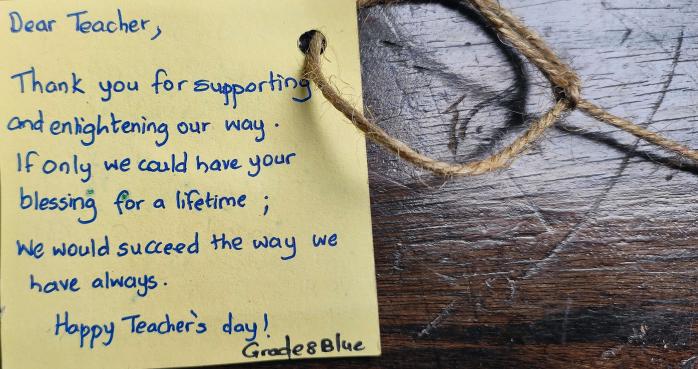 Dear Teacher,
Thank you for supporting
and enlightening our way.
If only we could have your
blessing for a lifetime ;
We would succeed the way we
have always.
Happy Teacher's day!
Grade 8 Blue